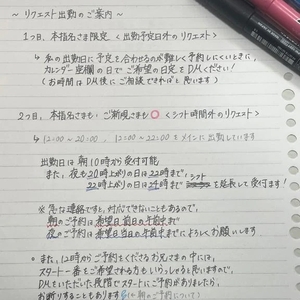 ~ リクエスト出勤のご案内 ~
1つ目、本指名さま限定 〈出勤予定日外のリクエスト〉
↳ 私の出勤日に予定を合わせるのが難しく予約しにくいときに、
カレンダー空欄の日でご希望の日定をDMください!
(お時間はDM後にご相談できればと思います)
2つ目、本指名さまも・ご新規さまも○ 〈シフト時間外のリクエスト〉
↳ 12:00~20:00、12:00~22:00をメインに出勤しています
出勤日は朝10時から受付可能
また、夜も20時上がりの日は22時まで、
22時上がりの日は24時までシフトを延長して受付ます!
※急な連絡ですと、対応できないこともあるので、
朝のご予約は希望日前日の午前中まで
夜のご予約は希望日当日の午前中までによろしくお願いします
○ また、12時からご予約をくださるお兄さまの中には、
スタート一番をご希望される方もいらっしゃると思いますので、
DMをいただいた段階でスタートにご予約がありましたら、
お断りすることもあります(10朝のご予約について)